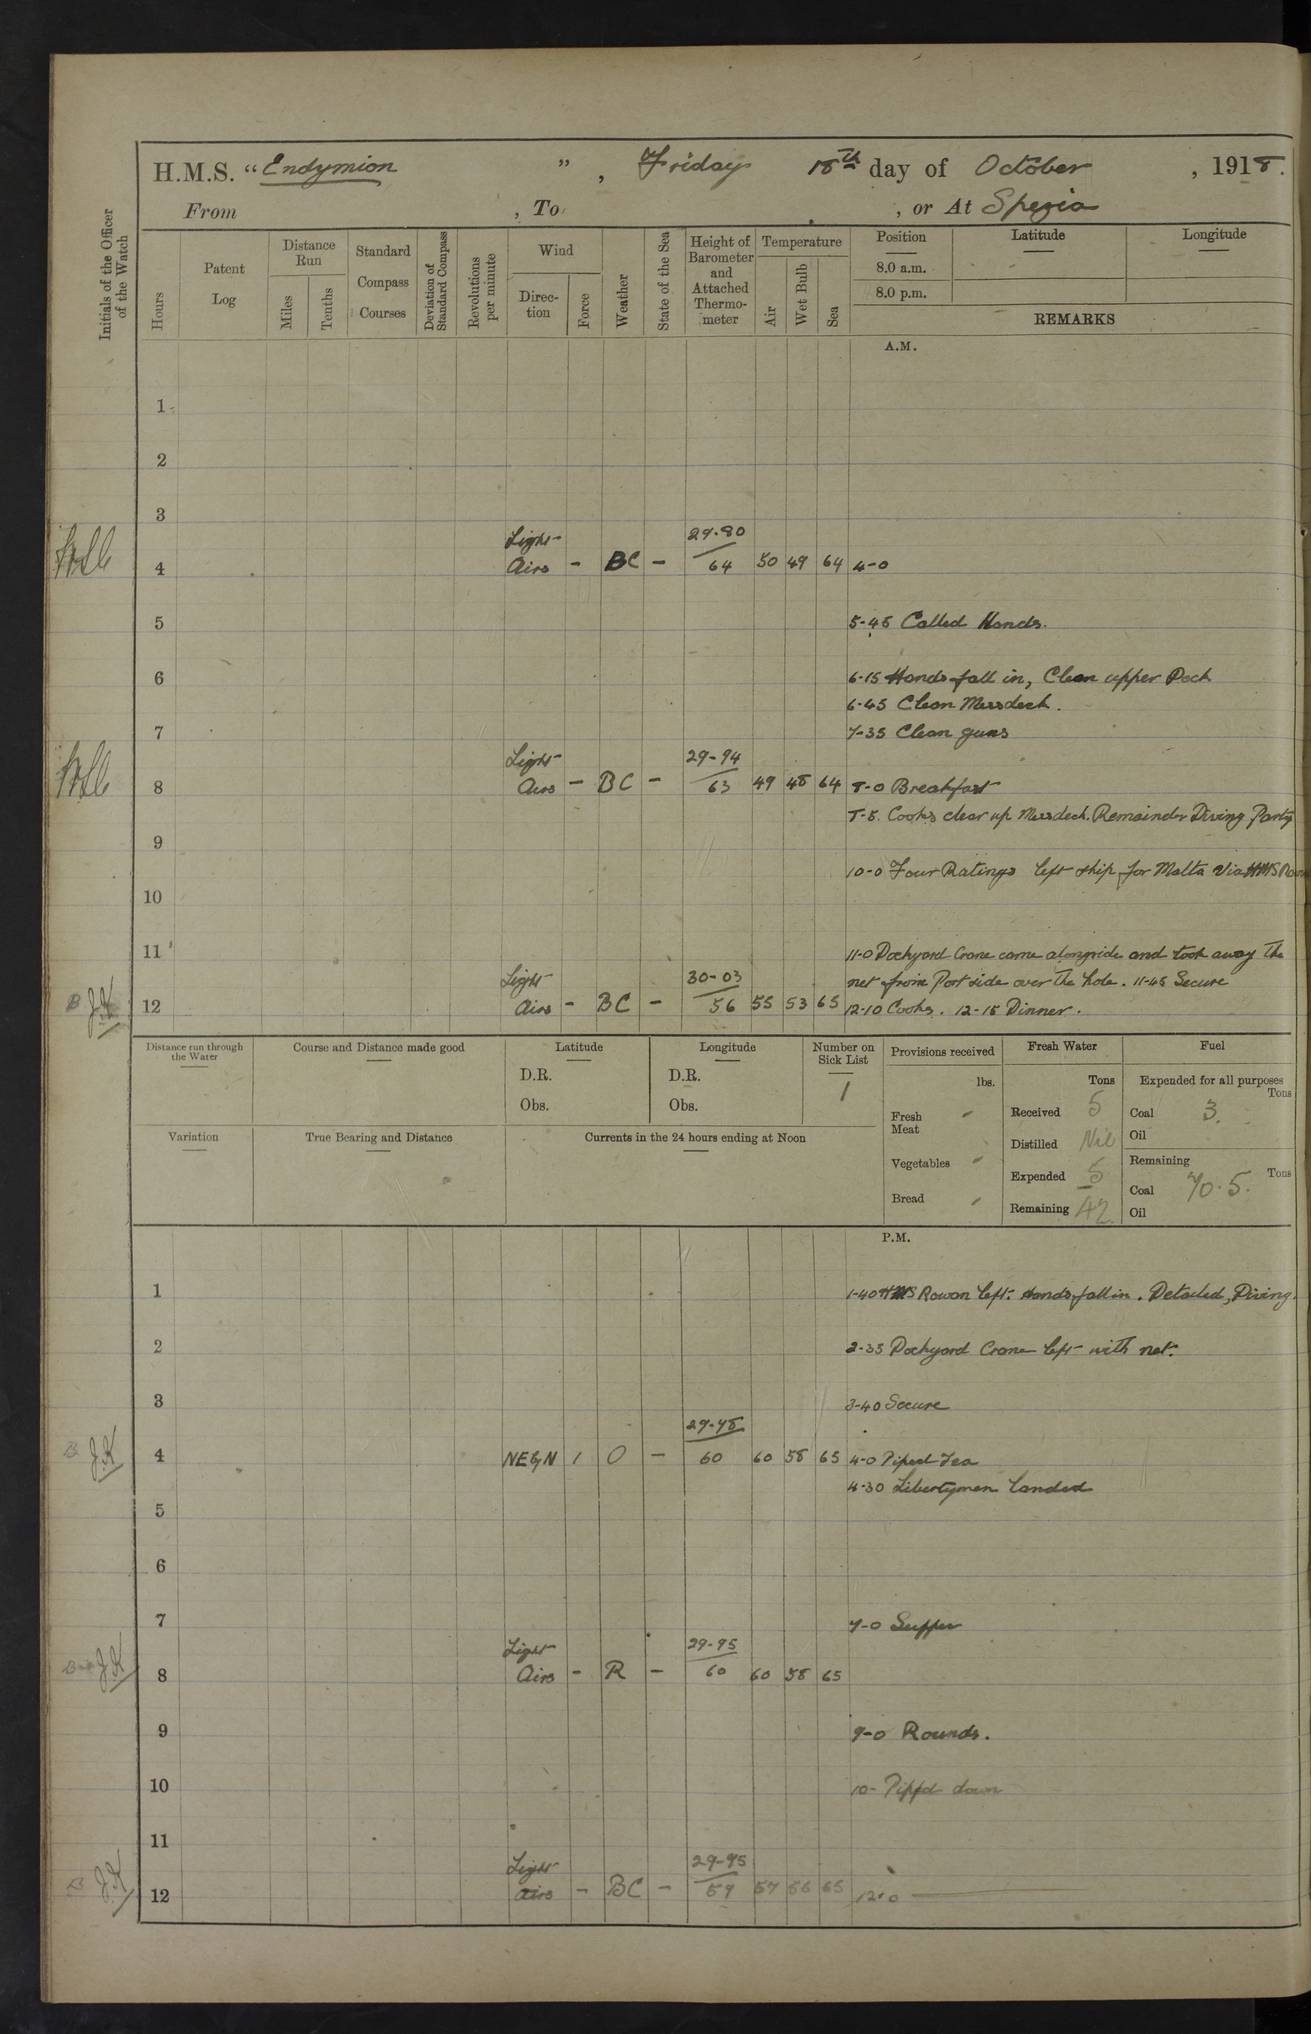 H.M.S. "Endymion", Friday 18th day of October, 1918.
From , To , or At Spezia
Initials of the Officer of the Watch
Hours
Patent Log
Distance Run
Miles
Tenths
Standard Compass Courses
Deviation of Standard Compass
Revolutions per minute
Wind
Direction
Force
Weather
State of the Sea
Height of Barometer and Attached Thermometer
Temperature
Air
Wet Bulb
Sea
Position Latitude Longitude
8.0 a.m.
8.0 p.m.
REMARKS
A.M.
1
2
3
4 Light Airs - BC - 29-80 64 50 49 64 4-0
5 5-45 Called Hands.
6 6-15 Hands fall in, Clean upper Deck
6-45 Clean Messdeck.
7 7-35 Clean guns
8 Light Airs - BC - 29-94 63 49 48 64 8-0 Breakfast
8-5. Cooks clear up Messdeck. Remainder Diving Party
9
10-0 Four Ratings left ship for Malta via HMS
10
11 11-0 Dockyard Crane came alongside and took away the
net from Port side over the hole. 11-45 Secure
J.K 12 Light Airs - BC - 30-03 56 55 53 65 12-10 Cooks. 12-15 Dinner.
Distance run through the Water
Course and Distance made good
Latitude
D.R.
Obs.
Longitude
D.R.
Obs.
Number on Sick List
1
Provisions received
lbs.
Fresh Meat -
Vegetables -
Bread -
Fresh Water
Tons
Received 5
Distilled Nil
Expended 5
Remaining 42
Fuel
Expended for all purposes
Tons
Coal 3.
Oil
Remaining
Tons
Coal 70.5.
Oil
Variation
True Bearing and Distance
Currents in the 24 hours ending at Noon
P.M.
1 1-40 HMS Rowan left. Hands fall in. Detailed, Diving.
2 2-35 Dockyard Crane left with net.
3 3-40 Secure
J.K 4 NE by N 1 O - 29-98 60 60 58 65 4-0 Piped Tea
4-30 Libertymen landed
5
6
7 7-0 Supper
J.K 8 Light Airs - R - 29-95 60 60 58 65
9 9-0 Rounds.
10 10- Piped down
11
J.K 12 Light airs - BC - 29-95 59 57 56 65 12.0